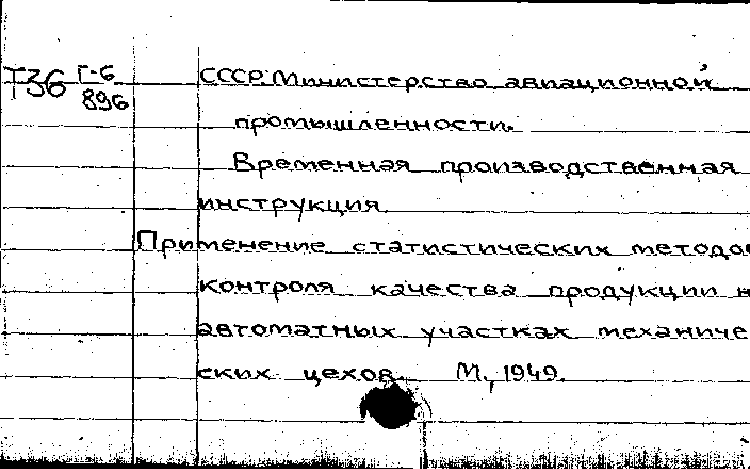 Т36 Г-6 СССР. Министерство авиационной
896
промышленности.
Временная производственная
инструкция
Применение статистических методо
контроля качества продукции н
автоматных участках механиче
ских цехов. М., 1949.